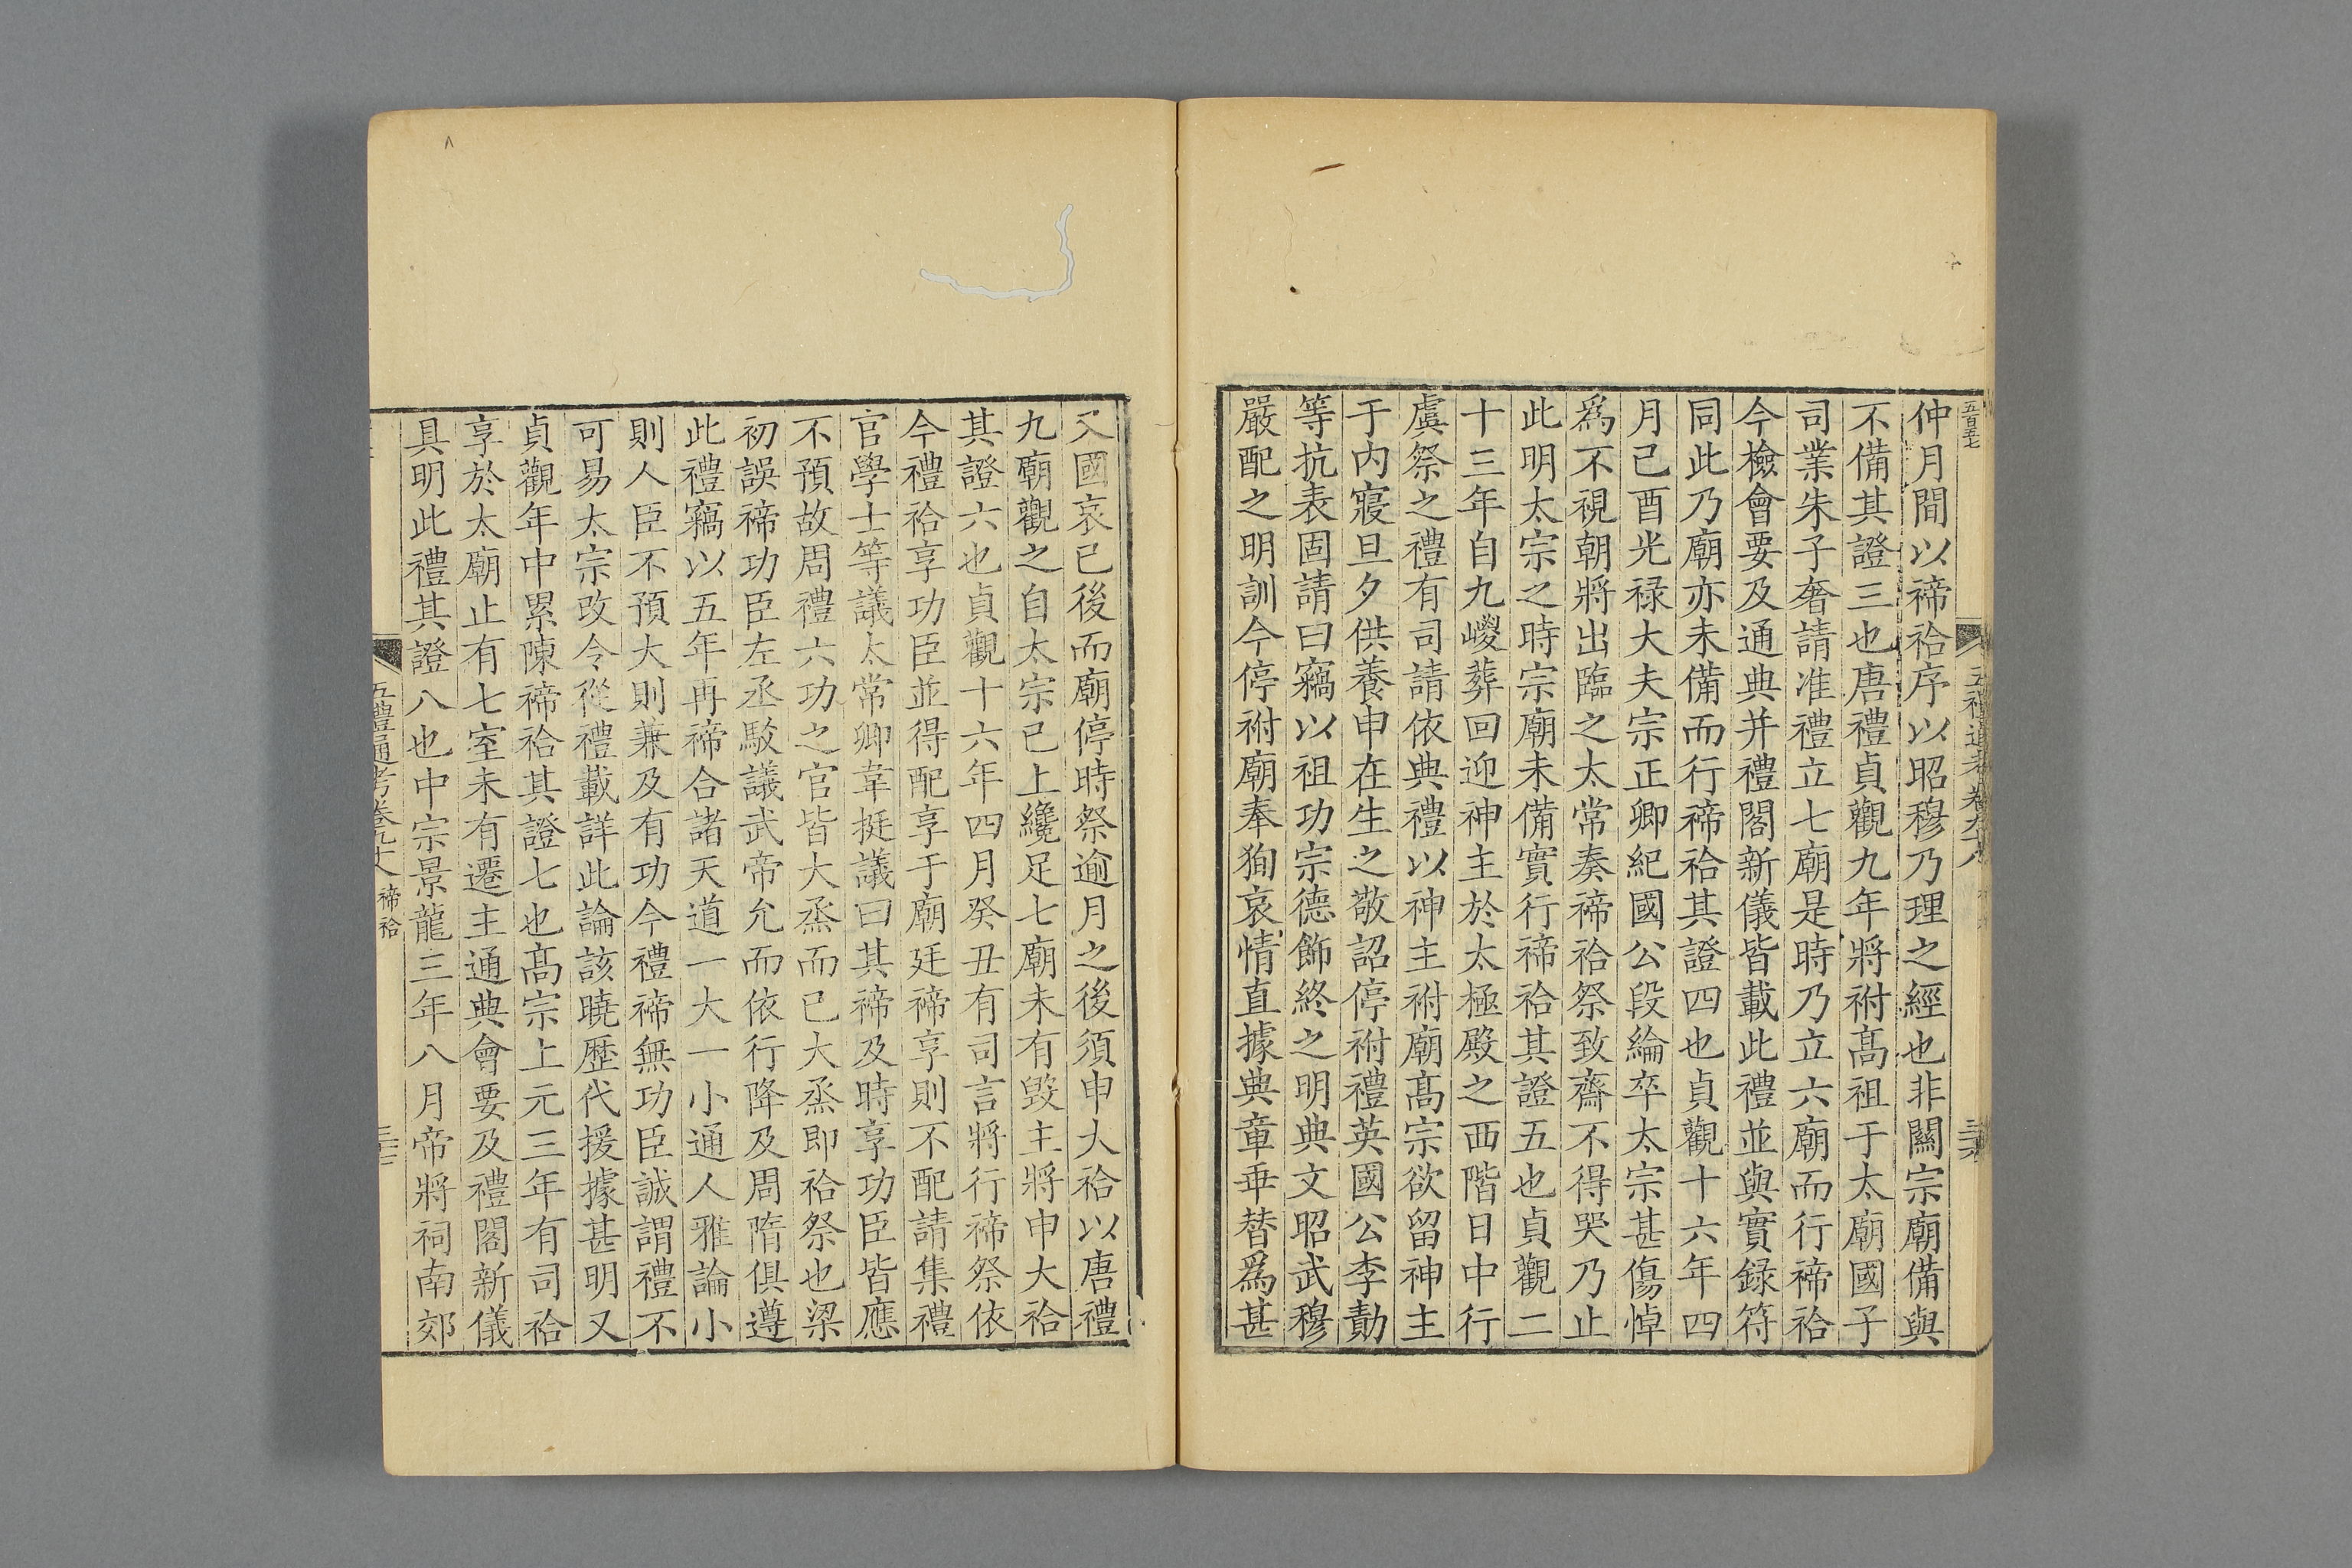 五百五七
仲月間以禘祫序以昭穆乃理之經也非關宗廟備與
不備其證三也唐禮貞觀九年將祔髙祖于太廟國子
司業朱子奢請准禮立七廟是時乃立六廟而行禘祫
今檢會要及通典并禮閣新儀皆載此禮並與實録符
同此乃廟亦未備而行禘祫其證四也貞觀十六年四
月己酉光禄大夫宗正卿紀國公段綸卒太宗甚傷悼
爲不視朝將出臨之太常奏禘祫祭致齋不得哭乃止
此明太宗之時宗廟未備實行禘祫其證五也貞觀二
十三年自九嵕葬回迎神主於太極殿之西階日中行
虞祭之禮有司請依典禮以神主祔廟髙宗欲留神主
于内寢旦夕供養申在生之敬詔停祔禮英國公李勣
等抗表固請曰竊以祖功宗德飾終之明典文昭武穆
嚴配之明訓今停祔廟奉狥哀情直據典章乖替爲甚
又國哀已後而廟停時祭逾月之後須申大祫以唐禮
九廟觀之自太宗已上纔足七廟未有毀主將申大祫
其證六也貞觀十六年四月癸丑有司言將行禘祭依
今禮祫享功臣並得配享于廟廷禘享則不配請集禮
官學士等議太常卿韋挺議曰其禘及時享功臣皆應
不預故周禮六功之官皆大烝而已大烝即祫祭也梁
初誤禘功臣左丞駮議武帝允而依行降及周隋俱遵
此禮竊以五年再禘合諸天道一大一小通人雅論小
則人臣不預大則兼及有功今禮禘無功臣誠謂禮不
可易太宗改令從禮載詳此論該曉歷代援據甚明又
貞觀年中累陳禘祫其證七也髙宗上元三年有司祫
享於太廟止有七室未有遷主通典會要及禮閣新儀
具明此禮其證八也中宗景龍三年八月帝將祠南郊
五禮通考卷九十八 禘祫